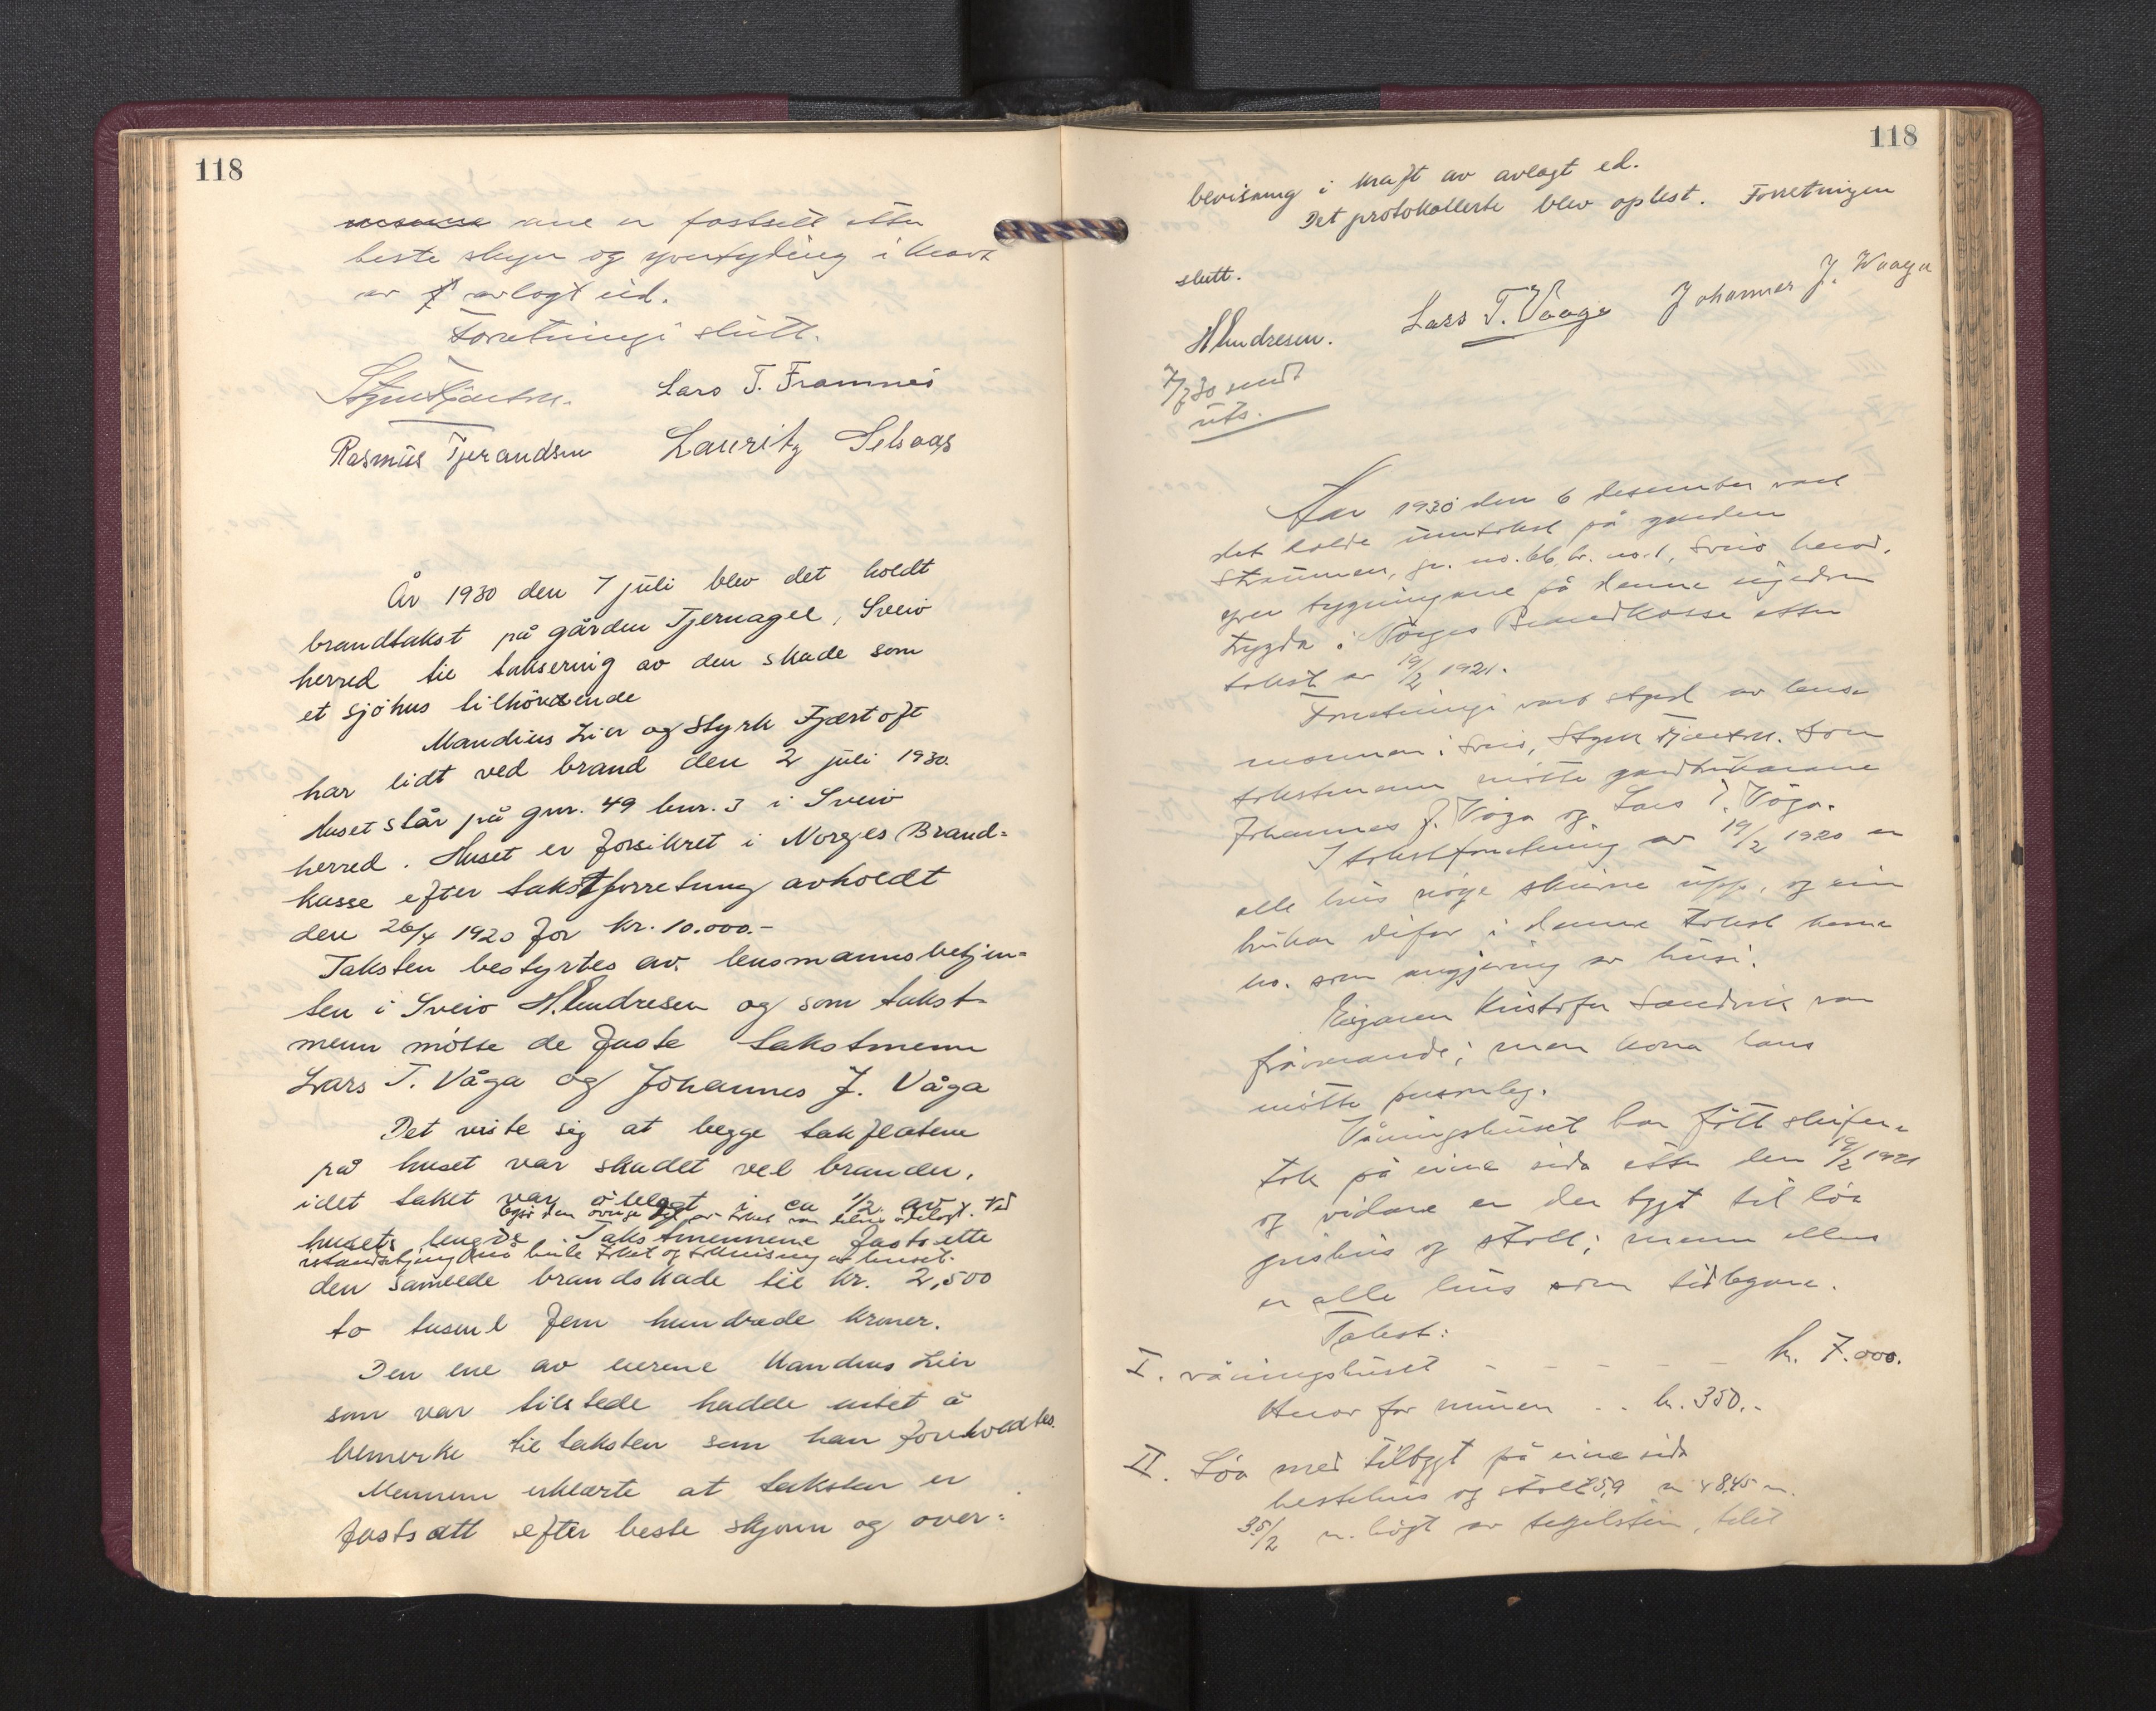 118
ane er fastsett etter
beste skyn og yvertyding i kraft
av avlagt eid.
Forretningi slutt.
Styrk Fjærtoft. Lars T. Framnes
Rasmus Tjerandsen Lauritz Selsaas
År 1930 den 7 juli blev det holdt
brandtakst på gården Tjernagel, Sveio
herred til taksering av den skade som
et sjöhus tilhörende
Mandius Lier og Styrk Fjærtoft
har lidt ved brand den 2 juli 1930.
Huset står på gnr. 49 bnr. 3 i Sveio
herred. Huset er forsikret i Norges Brand-
kasse efter takstforretning avholdt
den 26/4 1920 for kr. 10.000.-
Taksten bestyrtes av lensmannsbetjen-
ten i Sveio H. Endresen og som takst-
menn mötte de faste takstmenn
Lars T. Våga og Johannes J. Våga
Det viste sig at begge takflatene
på huset var skadet ved branden,
idet taket var ödelagt i ca 1/2 av
Også den övrige del av taket var delvis ödelagt. Ved
husets lengde. Takstmennene fastsette
istandsetjing må hele taket og
den samlede brandskade til kr. 2,500
to tusend fem hundrede kroner.
Den ene av eierene Mandius Lier
som var tilstede hadde intet å
bemerke til taksten som han foreholdtes.
Mennene erklærte at taksten er
fastsatt efter beste skjönn og over-
118
bevisning i kraft av avlagt ed.
Det protokollerte blev oplest. Forretningen
slutt.
H Endresen. Lars T. Vaage Johannes J. Waage
7/7 30 sendt
uts.
Aar 1930 den 6 desember vart
det halde umtakst på garden
Straumen, gr. no. 66, br. no. 1, Sveio herad,
yver bygningane på denne eigedom
trygda i Norges Brandkasse etter
takst av 19/2 1921.
Forretningi vart styrd av lens-
mannen i Sveio, Styrk Fjærtoft. Som
takstmenn mötte gardbrukarane
Johannes J. Våga og Lars T. Våga.
I takstforretning av 19/2 1920 er
alle hus nöye skrivne upp, og ein
brukar difor i denne takst same
no. som umgjering av husi.
Eigaren Kristofer Sandvik var
fråverande; men kona hans
mötte personleg.
Våningshuset har fått skifer-
tak på eine sida etter den 19/2 1921
og vidare er der bygt til löa
grishus og stall; menn elles
er alle hus som tidlegare.
Takst:
I. våningshuset - - - - - kr. 7.000.
Herav for muren . . kr. 350.-
II. Löa med tilbygt på eine sida
hestehus og stall 5,9 m x 8,45 m.
35/2 m. högt av tegelstein,